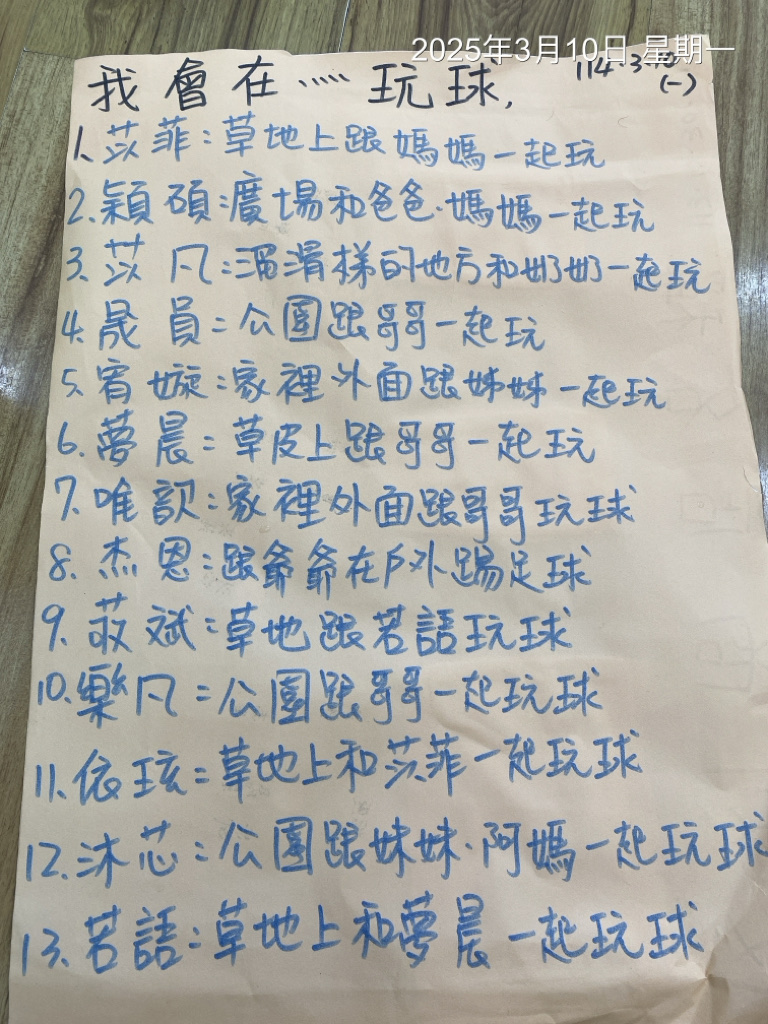 2025年3月10日 星期一
我會在⋯⋯玩球,
114.3.10
(一)
1、苡菲:草地上跟媽媽一起玩
2、穎碩:廣場和爸爸.媽媽一起玩
3、苡凡:溜滑梯的地方和奶奶一起玩
4、晟員:公園跟哥哥一起玩
5、宥嫙:家裡外面跟姊姊一起玩
6、夢晨:草皮上跟哥哥一起玩
7、唯歆:家裡外面跟哥哥玩球
8、杰恩:跟爺爺在戶外踢足球
9、苡斌:草地跟若語玩球
10、樂凡:公園跟哥哥一起玩球
11、依玹:草地上和苡菲一起玩球
12、沐芯:公園跟妹妹.阿媽一起玩球
13、若語:草地上和夢晨一起玩球